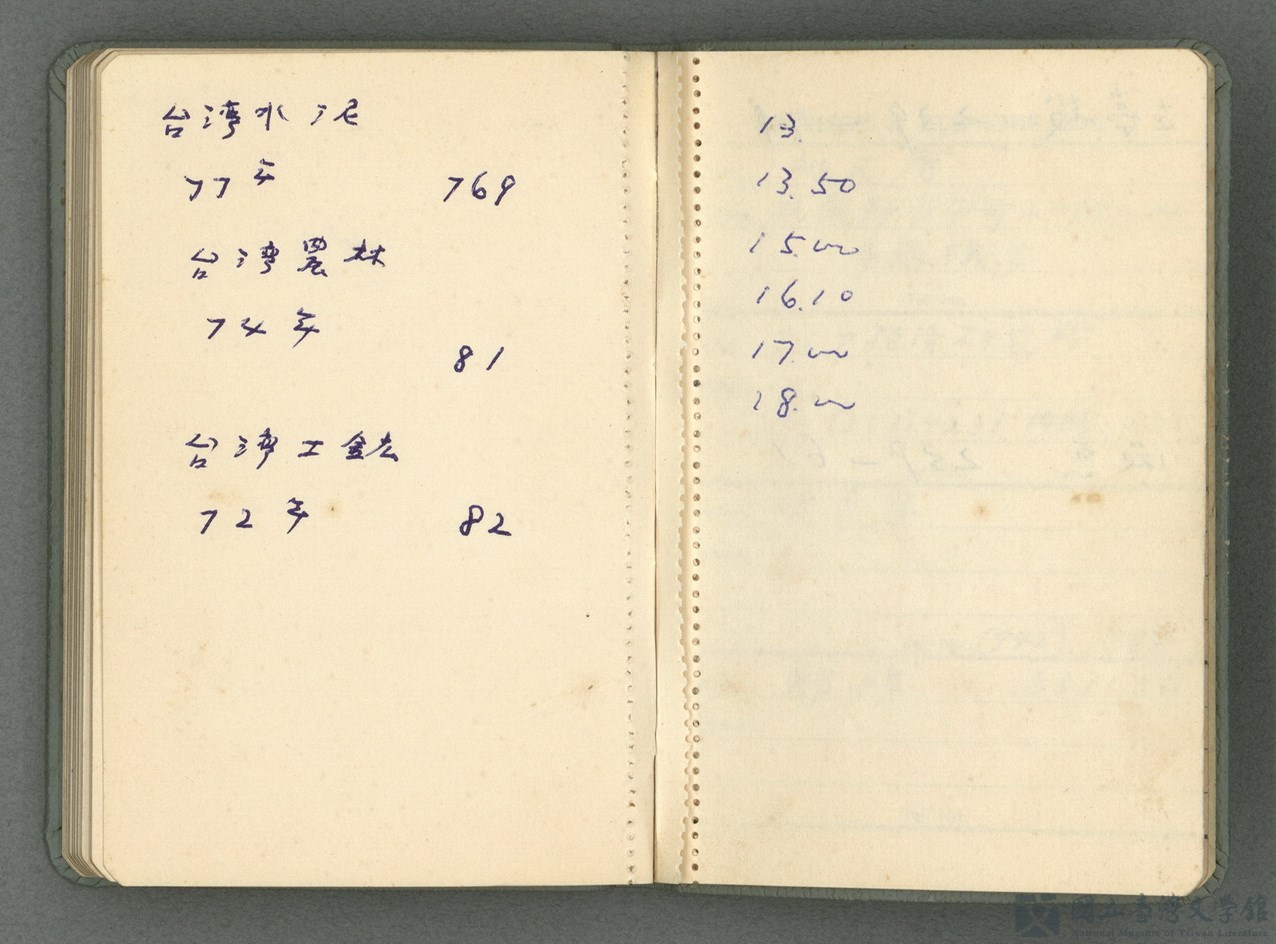 台湾水泥
77年 769
台湾農林
74年
81
台湾工鉱
72年 82
13.
13.50
15.00
16.10
17.00
18.00
國立臺灣文學館
National Museum of Taiwan Literature